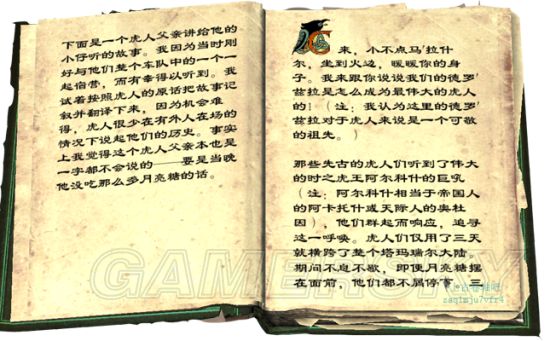 下面是一个虎人父亲讲给他的
小仔听的故事。我因为当时刚
好与他们整个车队中的一个一
起宿营，而有幸得以听到。我
试着按照虎人的原话把故事记
叙并翻译下来，因为机会难
得，虎人很少在有外人在场的
情况下说起他们的历史。事实
上我觉得这个虎人父亲本也是
一字都不会说的——要是当晚
他没吃那么多月亮糖的话。
来，小不点马'拉什
尔，坐到火边，暖暖你的身
子。我来跟你说说我们的德罗'
兹拉是怎么成为最伟大的虎人
的！（注：我认为这里的德罗'
兹拉对于虎人来说是一个可敬
的祖先。）
那些先古的虎人们听到了伟大
的时之虎王阿尔科什的巨吼
（注：阿尔科什相当于帝国人
的阿卡托什或天际人的奥杜
因），他们群起而响应，追寻
这一呼唤。虎人们仅用了三天
就横跨了整个塔玛瑞尔大陆。
期间不息不歇，即便月亮糖摆
在面前，他们都不屑停下。三
GAMERSKY
zaqimju7vfr4